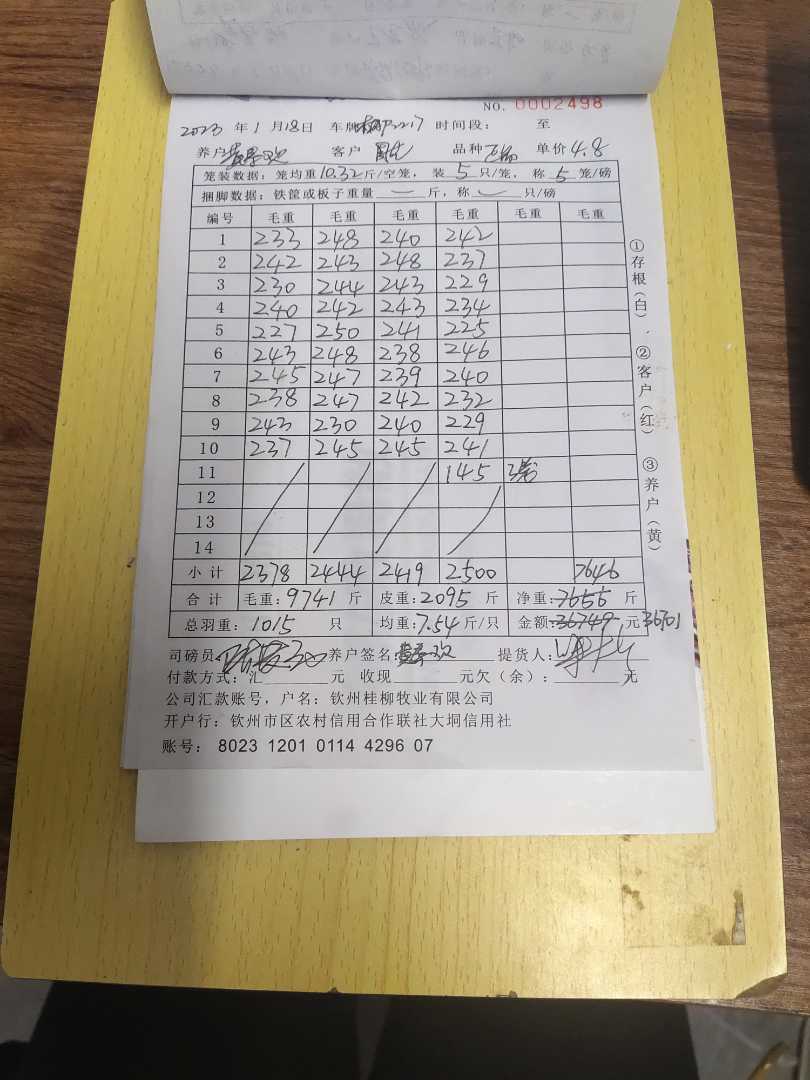 NO. 0002498
2023 年 1 月 18日 车牌 时间段： 至
养户 欢 客户 品种 单价 4.8
笼装数据：笼均重10.32斤/空笼，装 5 只/笼，称 5 笼/磅
捆脚数据：铁筐或板子重量 — 斤，称 — 只/磅
编号 毛重 毛重 毛重 毛重 毛重 毛重
1 233 248 240 242
2 242 243 248 237
3 230 244 243 229
4 240 242 243 234
5 227 250 241 225
6 243 248 238 246
7 245 247 239 240
8 238 247 242 232
9 243 230 240 229
10 237 245 245 241
11 145
12
13
14
小计 2378 2444 2419 2500 7646
合计 毛重：9741 斤 皮重：2095 斤 净重： 斤
总羽重：1015 只 均重：7.54 斤/只 金额：36749 元 36701
司磅员 养户签名： 欢 提货人：
付款方式：汇 元 收现 元欠（余）： 元
公司汇款账号，户名：钦州桂柳牧业有限公司
开户行：钦州市区农村信用合作联社大垌信用社
账号： 8023 1201 0114 4296 07
①存根（白）．②客户（红） ③养户（黄）